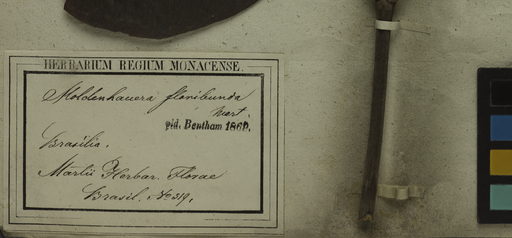 HERBARIUM REGIUM MONACENSE.
Moldenhauera floribunda
Mart.
vid. Bentham 1869.
Brasilia.
Martii Herbar. Florae
Brasil. No 319.